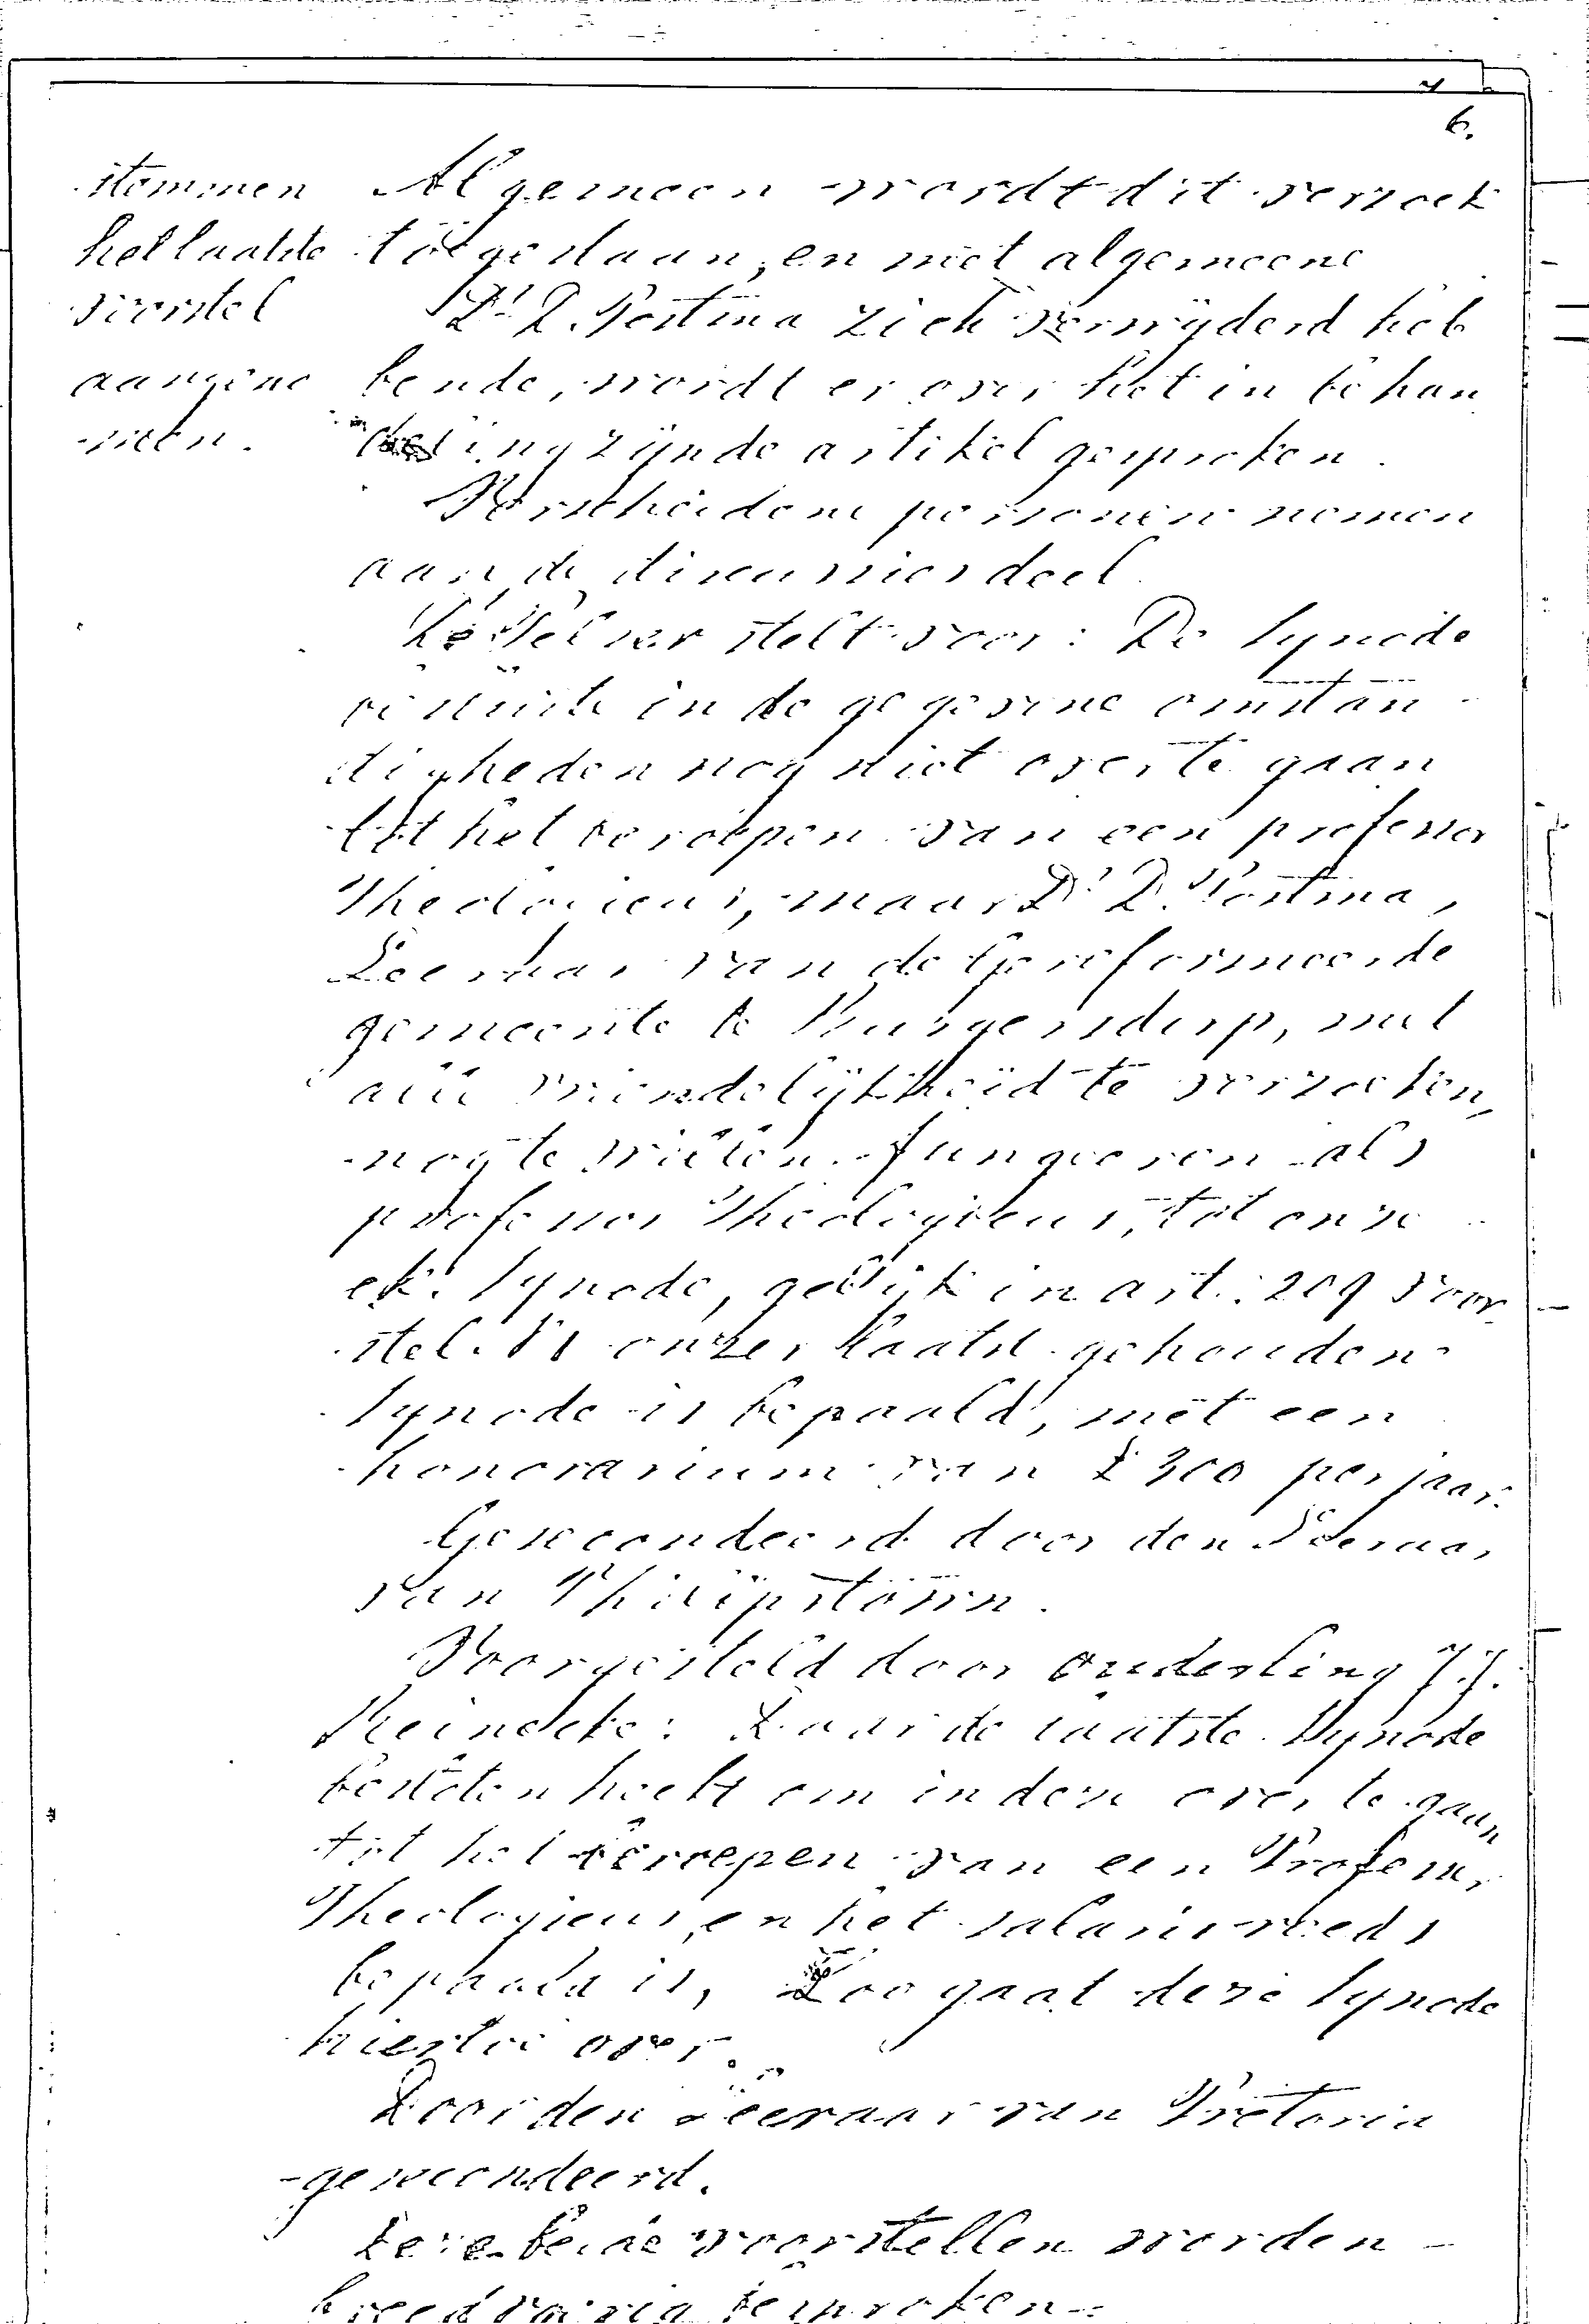 6.
stemmen
het laatste
voorstel
aangeno
men.
Algemeen wordt dit verzoek
toegestaan, en met algemeene
Ds D. Postma zich verwijderd heb
bende, wordt er over het in behan
deling zijnde artikel gesproken.
Verscheidene personen nemen
aan de discussies deel.
De scriba stelt voor: De Synode
besluite in de gegevene omstan
digheden nog niet over te gaan
tot het beroepen van een professor
Theologicus, maar Ds D. Postma,
Leeraar van de Gereformeerde
gemeente te Burgersdorp, met
alle vriendelijkheid te verzoeken,
nog te willen fungeeren als
professor Theologicus, tot onze
Synode, gelijk in art. 209 voor
stel onzer laatst gehouden
Synode is bepaald, met een
honorarium van £300 per jaar.
Gesecondeerd door den Leeraar
van Philipstown.
Voorgesteld door ouderling J.J.
Reineke: Daar de laatste Synode
besloten heeft om indezen over te gaan
tot het beroepen van een Professor
Theologicus, en het salaris reeds
bepaald is, Zoo gaat deze Synode
hiertoe over.
Door den Leeraar van Pretoria
gesecondeerd.
Deze beide voorstellen worden
breedvoerig besproken